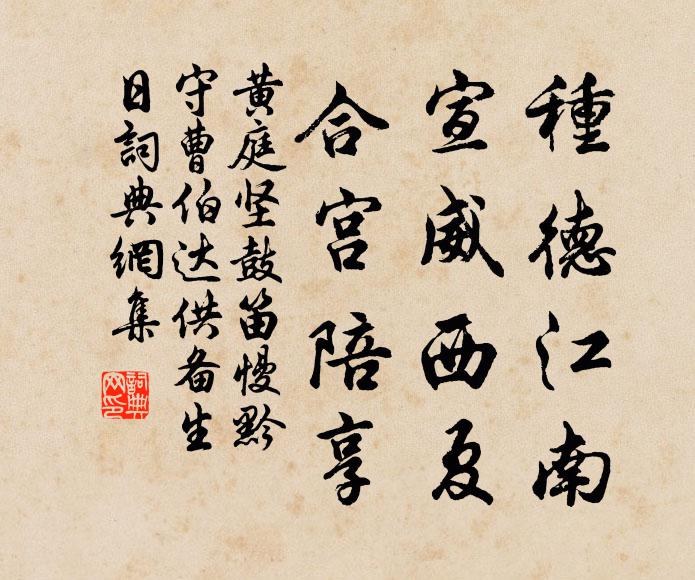 種德江南
宣威西夏
合宫陪享
黄庭坚鼓笛慢黔
守曹伯达供备生
日詞典網集
詞典
网印